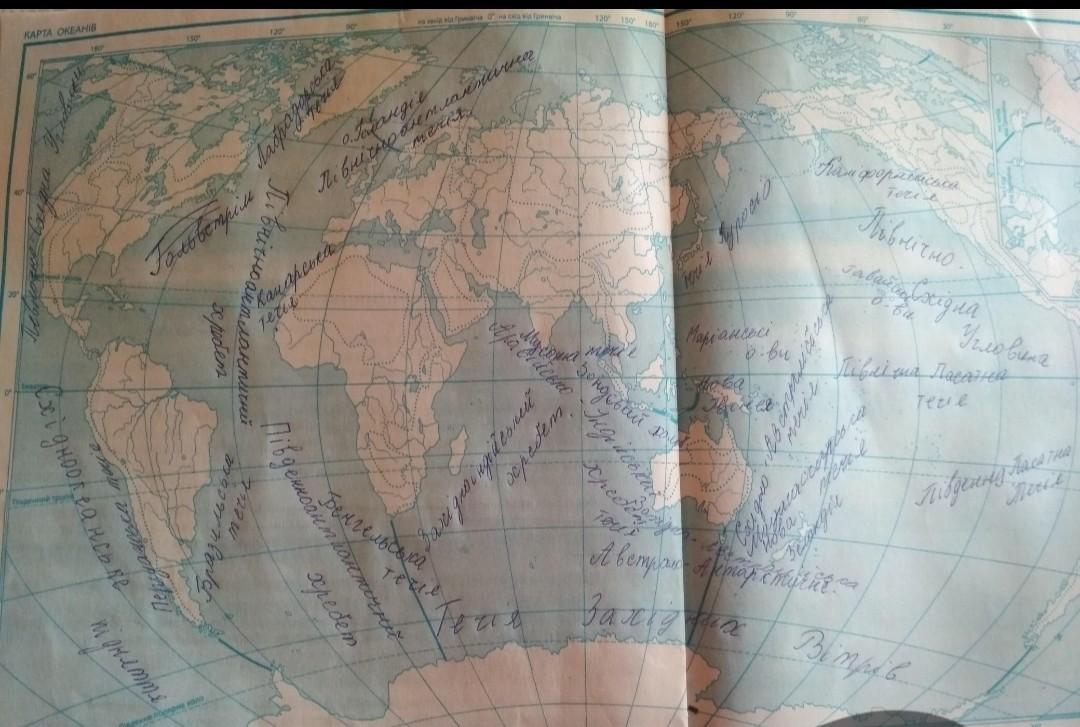 КАРТА ОКЕАНІВ
на захід від Гринвіча 0° на схід від Гринвіча
180° 150° 120° 90° 120° 150° 180° 150° 120° 90° 60° 30°
Лабрадорська
течія
о. Ісландія
Північноатлантичного
течія
Гольфстрім
Північноатлантичний
хребет
Канарська
течія
Північно-Східна
Угловина
Східноокеанське
підняття
Перуанська течія
Бразильська
течія
Південноатлантичний
хребет
Бенгельська
течія
Мусонна течія
Аравійсько-Індійський
хребет
Зондський жолоб
Західноіндійський
хребет.
Куросіо
течія
Маріанські
о-ви
Нова
Гвінея
Східно-Австралійська
течія
Нова
Зеландія
Австрало-Антарктичне.
Течія Західних Вітрів
Каліфорнійська
течія
Північно-
Східна
Угловина
Гавайські
о-ви
Північна Пасатна
течія
Південна Пасатна
Течія